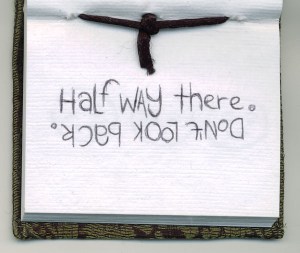 Half WAY there.
DON'T LOOK back.